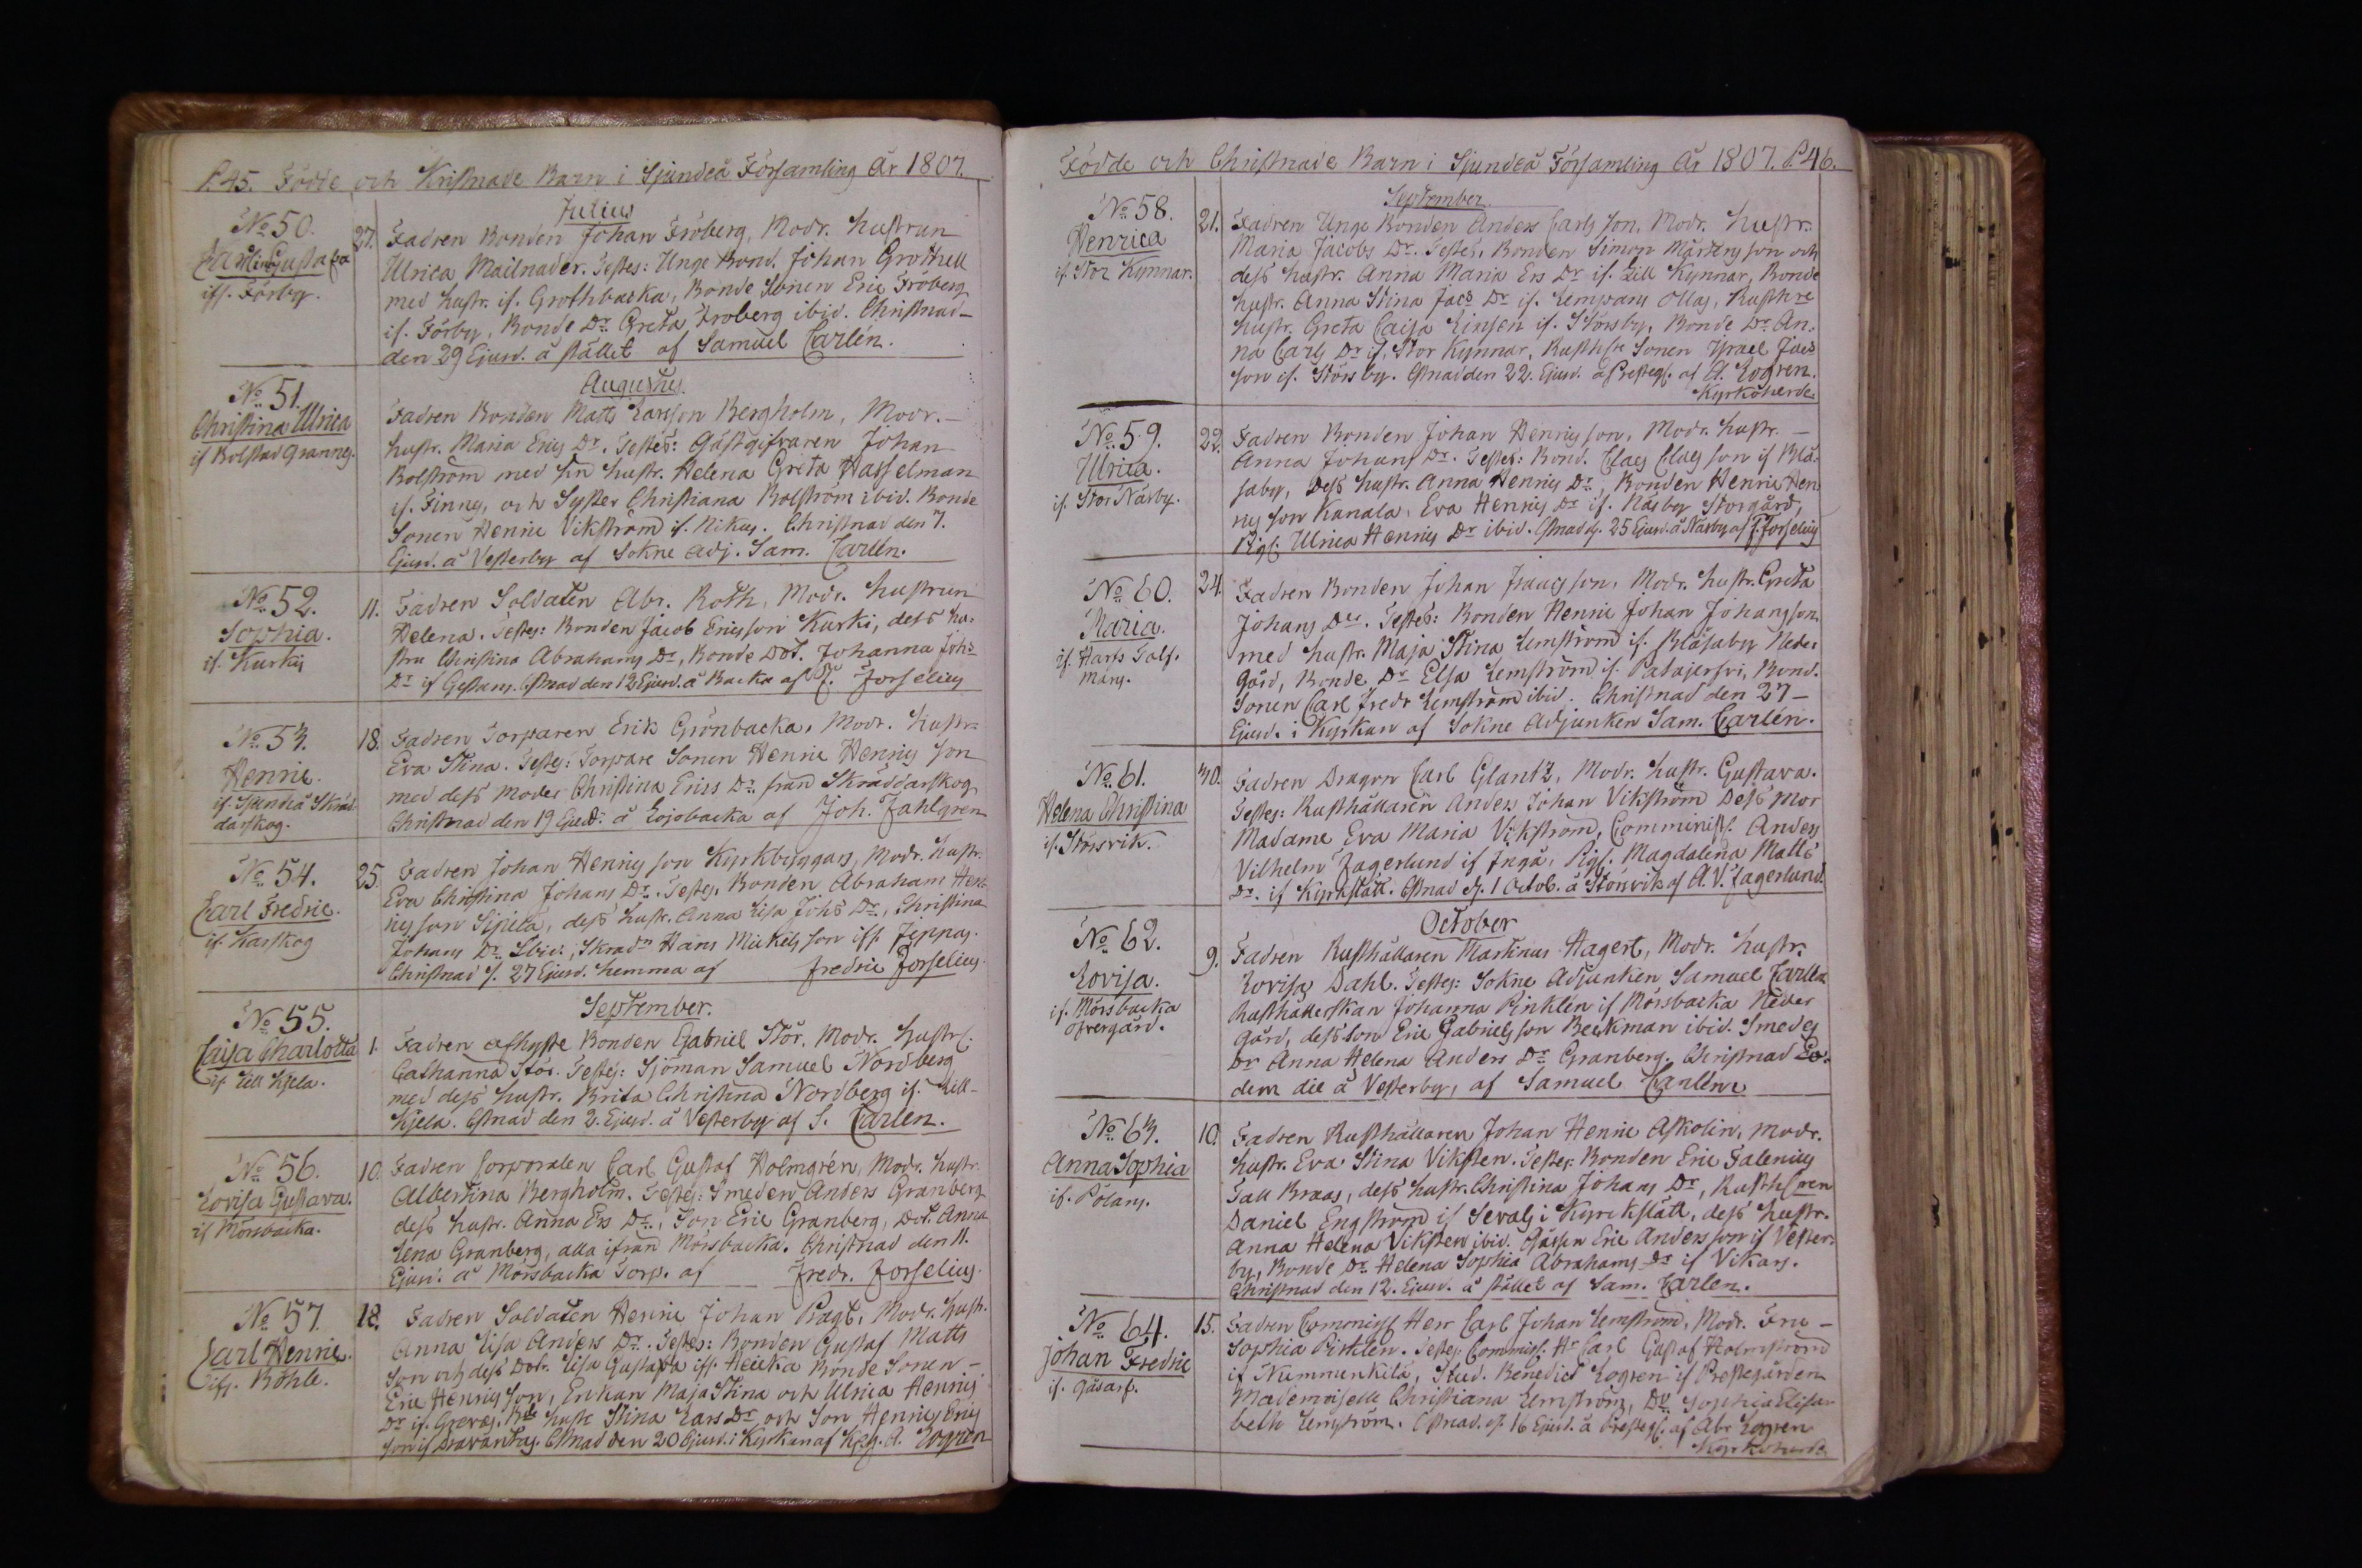 P.45. Födde och Kristnade Barn i Sjundeå Församling År 1807.
Julius
No 50.
Carolina Gustafva
ifr. Förby.
27. Fadren Bonden Johan Fröberg, Modr. hustrun
Ulrica Mailnader. Testes: Unge Bond. Johan Grothell
med hustr. if. Grothbacka, Bonde Sonen Eric Fröberg
if. Förby, Bonde Dr. Greta Froberg ibid. Christnad
den 29 Ejusd. å stället af Samuel Carlén.
Augustus
No 51.
Christina Ulrica
if Bolstad Granneg.
Fadren Bonden Matts Larsson Bergholm, Modr.
hustr. Maria Erics Dr. Testes: Gästgifvaren Johan
Bolström med sin hustr. Helena Greta Hasselman
if. Finns, och Syster Christiana Bolström ibid. Bonde
Sonen Henric Vikström if. Nikus. Christnad den 7.
Ejusd. å Vesterby af Sokne adj. Sam. Carlén.
No 52.
Sophia.
if. Kurkis
11. Fadren Soldaten Abr. Roth, Modr. hustrun
Helena. Testes: Bonden Jacob Ericsson Kurki, dess hu-
stru Christina Abrahams Dr, Bonde Dot. Johanna Johs
Dr if Gestans. Cstnad den 12 Ejusd. å Backa af F. Forselius
No 53.
Henric.
if. Sjundeå Skräd-
darskog.
18. Fadren Torparen Erik Grönbacka, Modr. hustr
Eva Stina. Testes: Torpare Sonen Henric Henrics son
med dess moder Christina Erics Dr. från Skräddarskog
Christnad den 19 Ejusd. å Lojobacka af Joh. Fahlgren
No 54.
Carl Fredric.
if. Karskog
25. Fadren Johan Henrics son Kyrkbyggars, Modr. hustr.
Eva Christina Johans Dr. Testes. Bonden Abraham Hen-
rics son Sipilä, dess hustr. Anna Lisa Johs Dr, Christina
Johans Dr. Ibid:, Skradn Hans Mickels son ifr. Jeppas.
Christnad d. 27 Ejusd. hemma af Fredric Forselius.
September.
No 55.
Caisa Charlotta
if. Lill Kjela.
1. Fadren afhyste Bonden Gabriel Stör. Modr. hustr.
Catharina Stör. Testes: Sjöman Samuel Nordberg
med dess hustr. Brita Christina Nordberg if. Lill-
Kjela. Cstnad den 2. Ejusd. å Vesterby af S. Carlen.
No 56.
Lovisa Gustava.
if Mörsbacka.
10. Fadren Corporalen Carl Gustaf Holmgrén, Modr. hustr.
Albertina Bergholm. Testes: Smeden Anders Granberg
dess hustr. Anna Ers Dr., Son Eric Granberg, Dot. Anna
Lena Granberg, alla ifrån Mörsbacka. Christnad den 11.
Ejusd. å Mörsbacka Torp. af Fredr. Forselius.
No 57.
Carl Henric.
ifr. Böhle.
18. Fadren Soldaten Henric Johan Pragt, Modr. hustr.
Anna Lisa Anders Dr. Testes: Bonden Gustaf Matts
son och dess Dotr. Lisa Gustafva ifr. Heicka Bonde Sonen
Eric Henrics son, Enkan Maja Stina och Ulrica Henrics
Dr if. Grevas. hustr Stina Lars Dr och Son Henric Erics
son if Dravantas. Cstnad den 20 Ejusd. i Kyrkan af Khg. A. Logren
Födde och Christnade Barn i Sjundeå Församling År 1807. P.46.
September.
No 58.
Henrica
if. Stor Kynnar.
21. Fadren Unge Bonden Anders Carls son, Modr. hustr.
Maria Jacobs Dr. Testes. Bonden Simon Mårtens son och
dess hustr. Anna Maria Ers Dr if. Lill Kynnar, Bonde
hustr. Anna Stina Jacs Dr if. Lempans Ollas, Rusthre
hustr. Greta Caisa Linsen if. Störsby, Bonde Dr. An-
na Carls Dr if. Stor Kynnar, Rusthre Sonen Israel Jacs
son if. Störsby. Cstnad den 22. Ejusd. å Presteg. af A. Logren.
Kyrkoherde.
No 59.
Ulrica.
if. Stor Näsby.
22. Fadren Bonden Johan Henrics son, Modr. hustr.
Anna Johans Dr. Testes: Bond. Claes Claes son if Blå-
saby, Dess hustr. Anna Henrics Dr, Bonden Henric Hen-
rics son Kanala, Eva Henrics Dr if. Näsby Storgård,
Pigs. Ulrica Henrics Dr ibid. Cstnad d. 25 Ejusd. å Näsby af F. Forselius
No 60.
Maria.
if. Harfs Tolf-
mans.
24. Fadren Bonden Johan Isaacs son, Modr. hustr. Greta
Johans Dr. Testes: Bonden Henric Johan Johansson
med hustr. Maja Stina Lemström if. Blåsaby Neder
gård, Bonde Dr Elsa Lemström if. Patajerfvi, Bond.
Sonen Carl Fredr Lemström ibid. Christnad den 27
Ejusd. i Kyrkan af Sokne Adjunken Sam. Carlén.
No 61.
Helena Christina
if. Störsvik.
30. Fadren Dragon Carl Glantz, Modr. hustr. Gustava.
Testes: Rusthållaren Anders Johan Vikström Dess Mor
Madame Eva Maria Vikström, Comminist. Anders
Vilhelm Fagerlund if Ingå, Pigs. Magdalena Matts
Dr. if Kyrkslätt. Cstnad d. 1 Octob. å Störsvik af A. V. Fagerlund.
October
No 62.
Lovisa.
if. Mörsbacka
Öfvergård.
9. Fadren Rusthållaren Martinus Hagert, Modr. hustr.
Lovisa Dahl. Testes: Sokne Adjunken Samuel Carlén
Rusthållerskan Johanna Pinklén if Mörsbacka Neder
gård, dess son Eric Gabriels son Beckman ibid. Smedes
Dr Anna Helena Anders Dr Granberg. Christnad Eo-
dem die å Vesterby, af Samuel Carlén
No 63.
Anna Sophia
if. Pölans.
10. Fadren Rusthållaren Johan Henric Askolin, Modr.
hustr. Eva Stina Viksten. Testes: Bonden Eric Falenius
Tall Braas, dess hustr. Christina Johans Dr, Rusthren
Daniel Engström if Sevals i Kyrckslätt, dess hustr.
Anna Helena Viksten ibid. Gåssen Eric Andersson if Vester-
by, Bonde Dr. Helena Sophia Abrahams Dr if Vikars.
Christnad den 12. Ejusd. å stället af Sam. Carlen.
No 64.
Johan Fredric
if. Gåsars.
15. Fadren Commiss Herr Carl Johan Lemström, Modr. Fru
Sophia Pinklen. Testes: Commiss. Hr Carl Gustaf Holmström
if Nummenkilä, Stud. Benedict Logren if Prestegården
Mademoiselle Christiana Lemström, Dr Sophia Elisa-
beth Lemström. Cstnad. d. 16 Ejusd. å Presteg. af Abr Logren
Kyrkoherde.